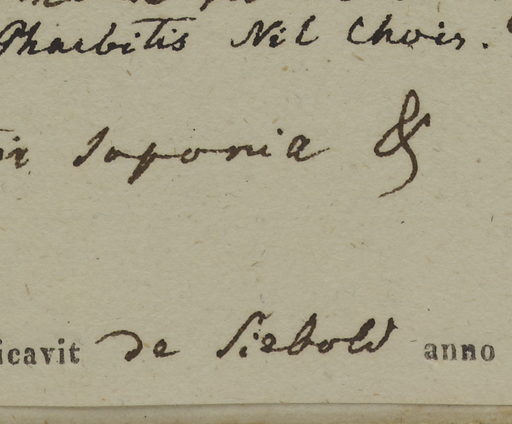 Pharbitis Nil Chois.
Japonia &
icavit de Siebold anno